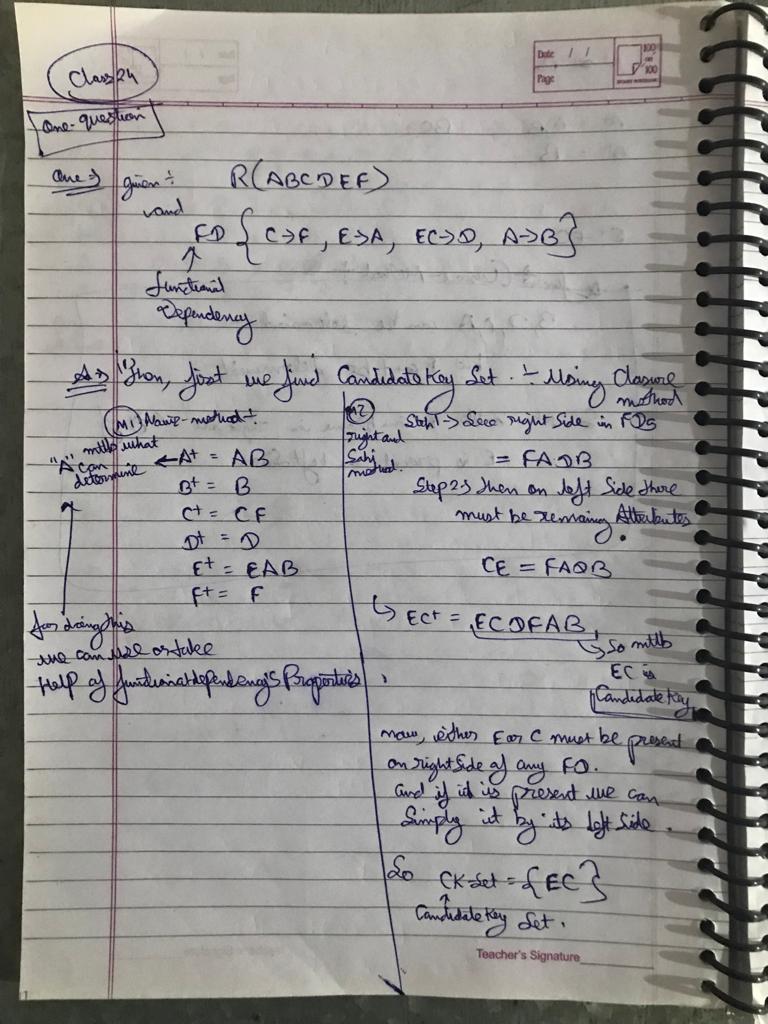 Class 24
Date / /
Page
100
100
One-question
Que →
given ÷
R(ABCDEF)
and
FD { C→F, E→A, EC→D, A→B }
functional
Dependency
A→ Then, first we find Candidate Key Set. ÷ Using Closure
method
M1 Naive-method ÷
mtlb what
"A" can
determine
← A+ = AB
B+ = B
C+ = CF
D+ = D
E+ = EAB
F+ = F
for doing this
we can use or take
Help of functional dependency's Properties.
M2
right and
Sahi
method.
Step1→ See right Side in FDs
= FADB
Step2→ then on left Side there
must be remaing Attributes.
CE = FADB
↳ EC+ = ECDFAB
↳ So mtlb
EC is
Candidate Key
now, either E or C must be present
on right Side of any FD.
and if it is present we can
Simply it by its left Side.
So CK-Set = {EC}
↑
Candidate Key Set.
Teacher's Signature